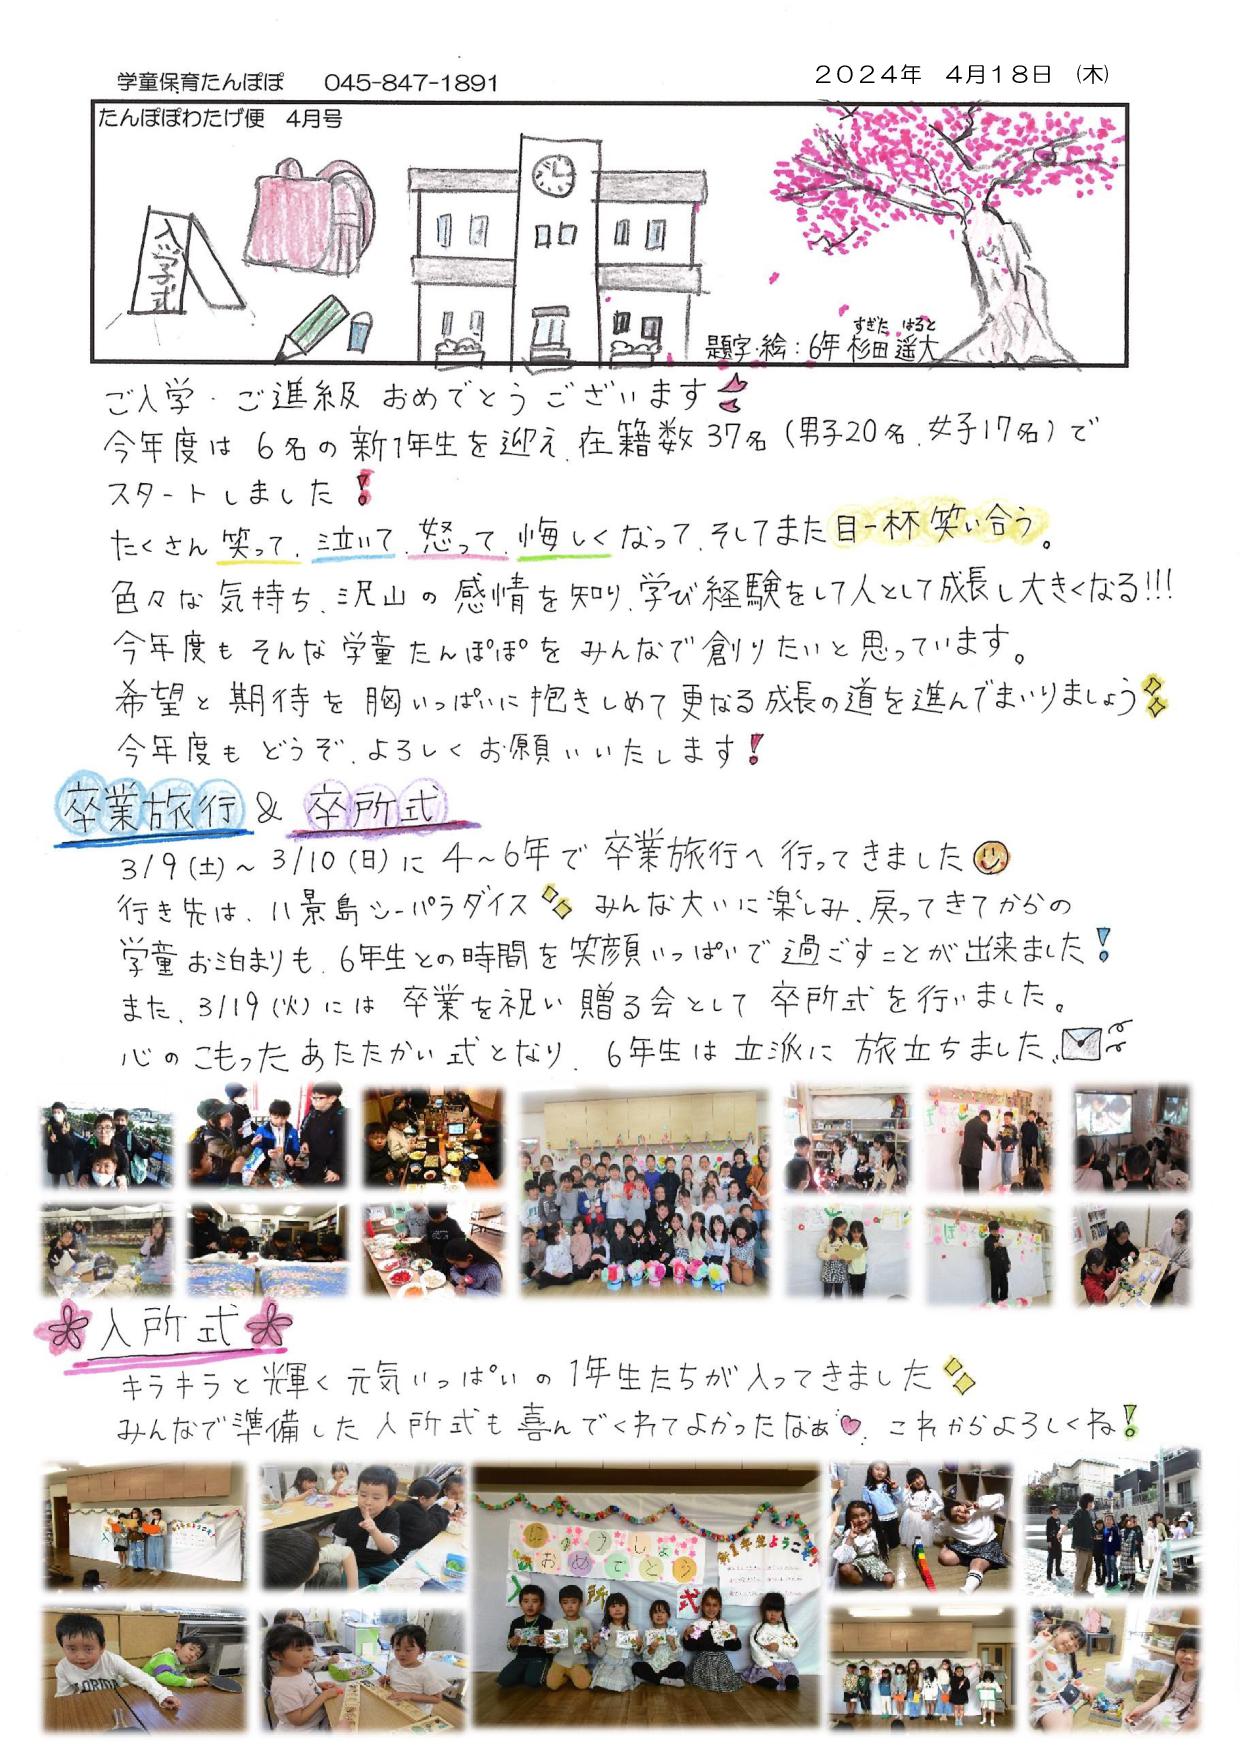 学童保育たんぽぽ 045-847-1891
2024年 4月18日 (木)
たんぽぽわたげ便 4月号
入学式
すぎた はると
題字・絵:6年 杉田 遥大
ご入学・ご進級 おめでとうございます
今年度は 6名の 新1年生を迎え、在籍数 37名 (男子20名、女子17名) で
スタートしました!
たくさん 笑って、泣いて、怒って、悔しくなって、そしてまた 目一杯 笑い合う。
色々な 気持ち、沢山の 感情を知り、学び経験をして人として成長し大きくなる!!!
今年度も そんな 学童 たんぽぽを みんなで創りたいと思っています。
希望と 期待を 胸いっぱいに 抱きしめて 更なる成長の道を進んでまいりましょう
今年度も どうぞ、よろしくお願いいたします!
卒業旅行 & 卒所式
3/9(土)~3/10(日)に 4~6年で 卒業旅行へ 行ってきました
行き先は、八景島シーパラダイス みんな大いに楽しみ、戻ってきてからの
学童お泊まりも、6年生との時間を笑顔いっぱいで 過ごすことが出来ました!
また、3/19(火)には 卒業を祝い 贈る会として 卒所式を行いました。
心のこもった あたたかい式となり、6年生は 立派に 旅立ちました。
入所式
キラキラと輝く元気いっぱいの1年生たちが入ってきました
みんなで準備した 入所式も喜んでくれてよかったなぁ これからよろしくね!
にゅうしょ
おめでとう
新1年生ようこそ
入所式